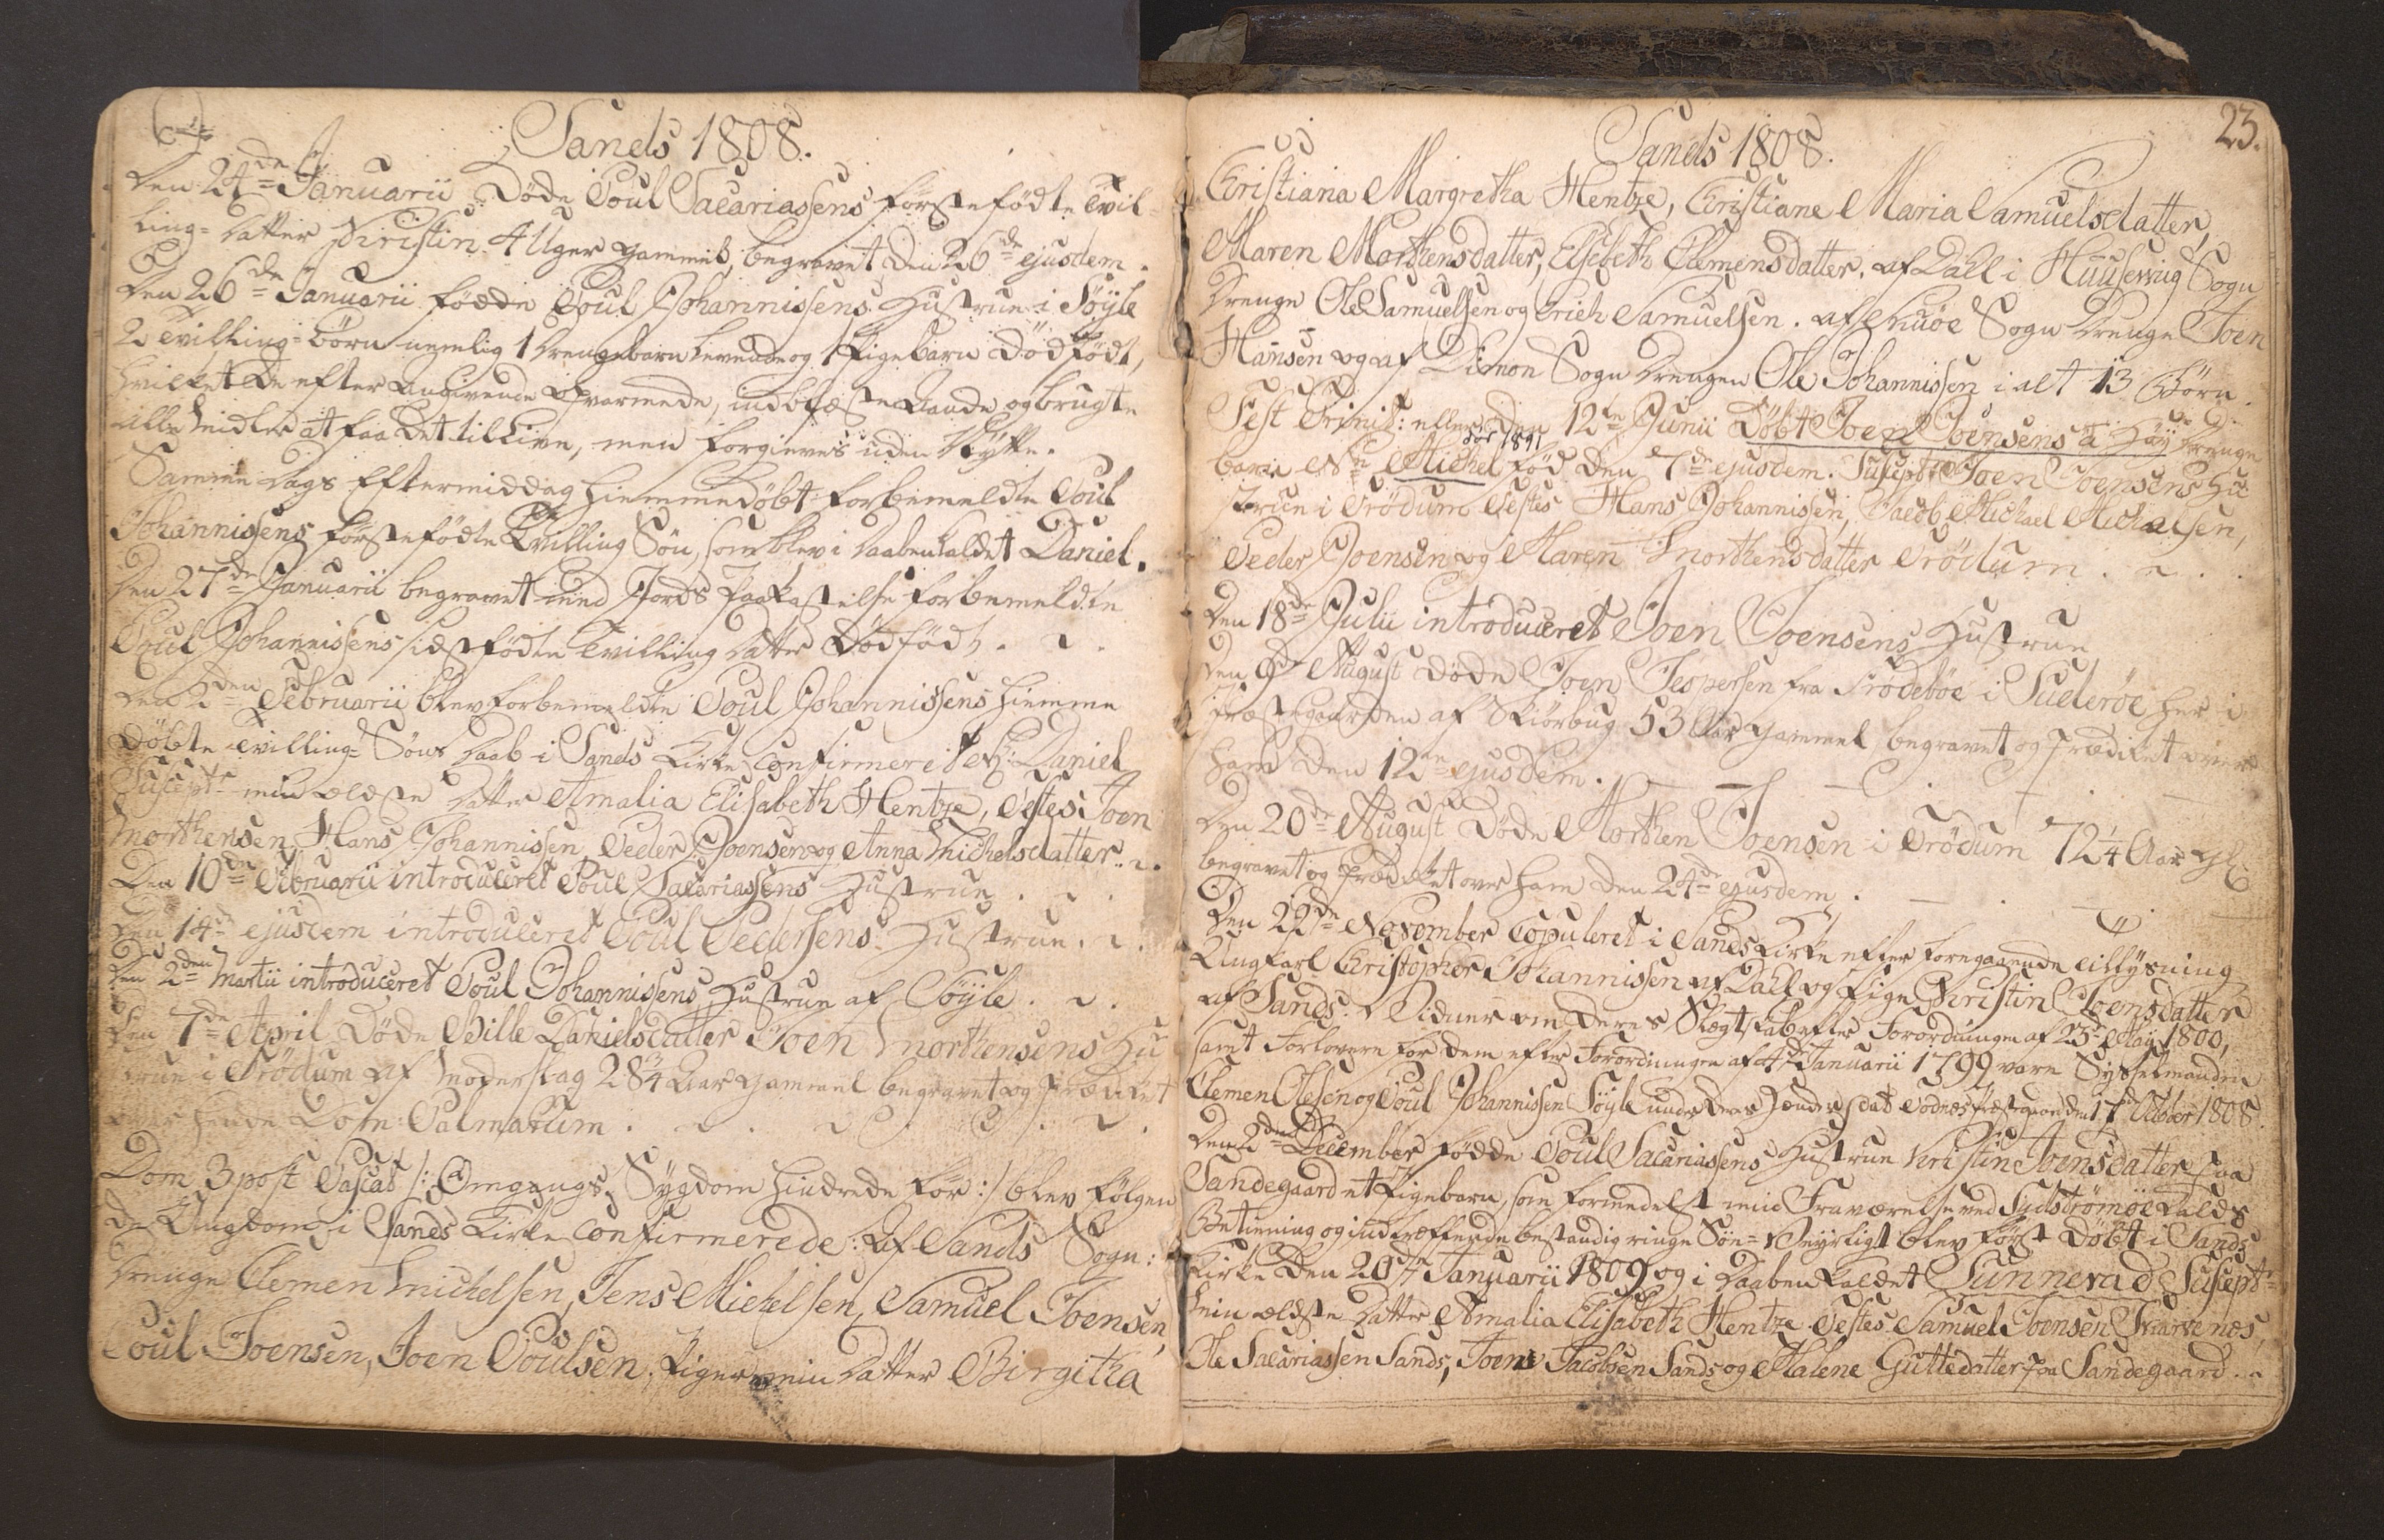 Sands 1808.
Den 24de Januarii Døde Poul Sacariassens første fødte Tvil-
ling-Datter Kiristin 4 Uger gammel, begravet den 26de ejusdem.
Den 26de Januarii fødde Poul Johannissens Hustrue i Søÿle
2 Tvilling-børn nemlig 1 Drengebarn levende og 1 Pigebarn Dødfødt,
hvilket de efter opvarmede, indblæste Aande og brugte
alle Midler at faa det til Live, men forgieves uden Nÿtte.
Samme Dags Eftermiddag Hiemmedøbt forbemeldte Poul
Johannissens første fødte Tvilling Søn, som blev i Daaben kaldet Daniel.
Den 27de Januarii begravet med Jords Paakastelse forbemeldte
Poul Johannissens sidst fødte Tvilling Datter Dødfødt.
Den 2den Februarii blev forbemeldte Poul Johannissens Hiemme
døbte Tvilling-Søns Daab i Sands Kirke Confirmeret N: Daniel
Suscept: min ældste Datter Amalia Elisabeth Hentze, Testes: Joen
Morthensen, Hans Johannissen, Peder Joensen og Anna Michelsdatter.
Den 10de Februarii introduceret Poul Sacariassens Hustrue.
Den 14de ejusdem introduceret Poul Pedersens Hustrue.
Den 2den Martii introduceret Poul Johannissens Hustrue af Søÿle.
Den 7de April Døde Bille Danielsdatter Joen Morthensens Hu
strue i Trødum af Moderslag 28¾ Aar gammel begravet og Prædiket
over hende Dom: Palmarum.
Dom 3 post Pascat /: Omgangs Sÿgdom hindrede før :/ blev følgen
de Ungdom i Sands Kirke Confirmerede: Af Sands Sogn:
Drenge Clemen Michelsen, Jens Michelsen, Samuel Joensen,
Poul Joensen, Joen Poulsen, Piger min Datter Birgitha
23.
Sands 1808.
Christiana Margretha Hentze, Christiane Maria Samuelsdatter,
Maren Morthensdatter, Elsebeth Clemensdatter. af Dahl i Huusevig Sogn
Drenge Ole Samuelsen og Erich Samuelsen. af Skuøe Sogn Drenge Joen
Hansen og af Dimon Sogn Drengen Ole Johannissen i alt 13 Børn.
Fest Trinit: eller den 12te Junii Døbt Joen Joensens à Høÿ Drenge
barn N: Michel fød den 7de ejusdem. Suscept: Joen Joensens Hu
strue i Trødum Testes Hans Johannissen, Jacob Michael Michaelsen,
Peder Joensen og Maren Morthensdatter Trødum.
Den 18de Julii introduceret Joen Joensens Hustrue
Den 9de August Døde Joen Jespersen fra Frødebøe i Suderøe her i
Præstegaarden af Skiørbug 53 Aar gammel begravet og Prædiket over
ham den 12te ejusdem.
Den 20de August Døde Morthen Joensen i Trødum 72¼ Aar gl:
begravet og Prædiket over ham den 24de ejusdem.
Den 22de November Copuleret i Sands Kirke efter foregaaende Tillÿsning
Ungkarl Christopher Johannissen af Dahl og Pige Kiristin Joensdatter
af Sands. Vidner om deres Slægtskab efter Forordningen af 23de May 1800,
samt Forlovere for dem efter Forordningen af 4de Januarii 1799 vare Sÿsselmanden
Clemen Olesen og Poul Johannissen Søÿle under deres Hænder dat: Todnæs Præstegaard den 17de Octobr 1808.
Den 2den December fødde Poul Sacariassens Hustrue Kristin Joensdatter paa
Sandegaard et Pigebarn, som formedelst min Fraværelse ved Sydstrømøe Kalds
Betiening og indtræffende bestandig ringe Søe-Veÿrligt blev først Døbt i Sands
Kirke den 20de Januarii 1809 og i Daaben kaldet Sunneva Suscept:
min ældste Datter Amalia Elisabeth Hentze Testes Samuel Joensen Trarenæs,
Ole Sacariassen Sands, Joen Jacobsen Sands og Malene Guttedatter paa Sandegaard.